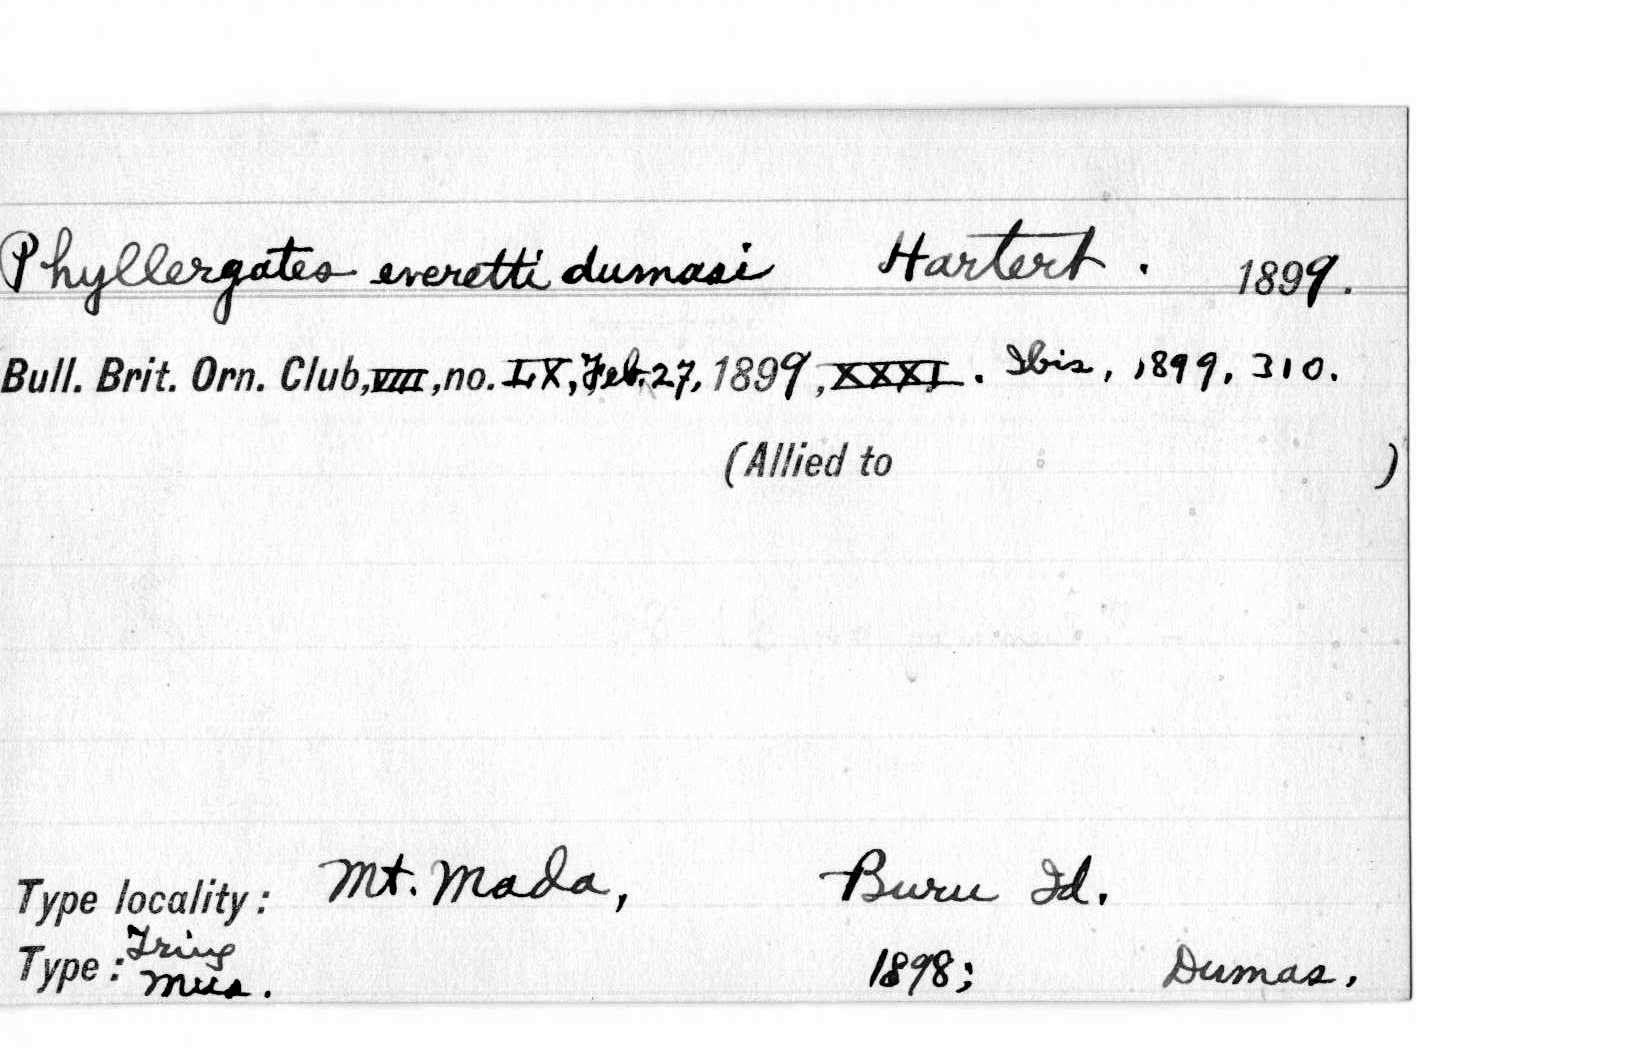 Phyllergates everetti dumasi Hartert. 1899.
Bull. Brit. Orn. Club, VIII, no. LX, Feb. 27, 1899, XXXI. Ibis, 1899, 310.
(Allied to )
Type locality: Mt. Mada, Buru Id.
Type: Tring Mus. 1898; Dumas.